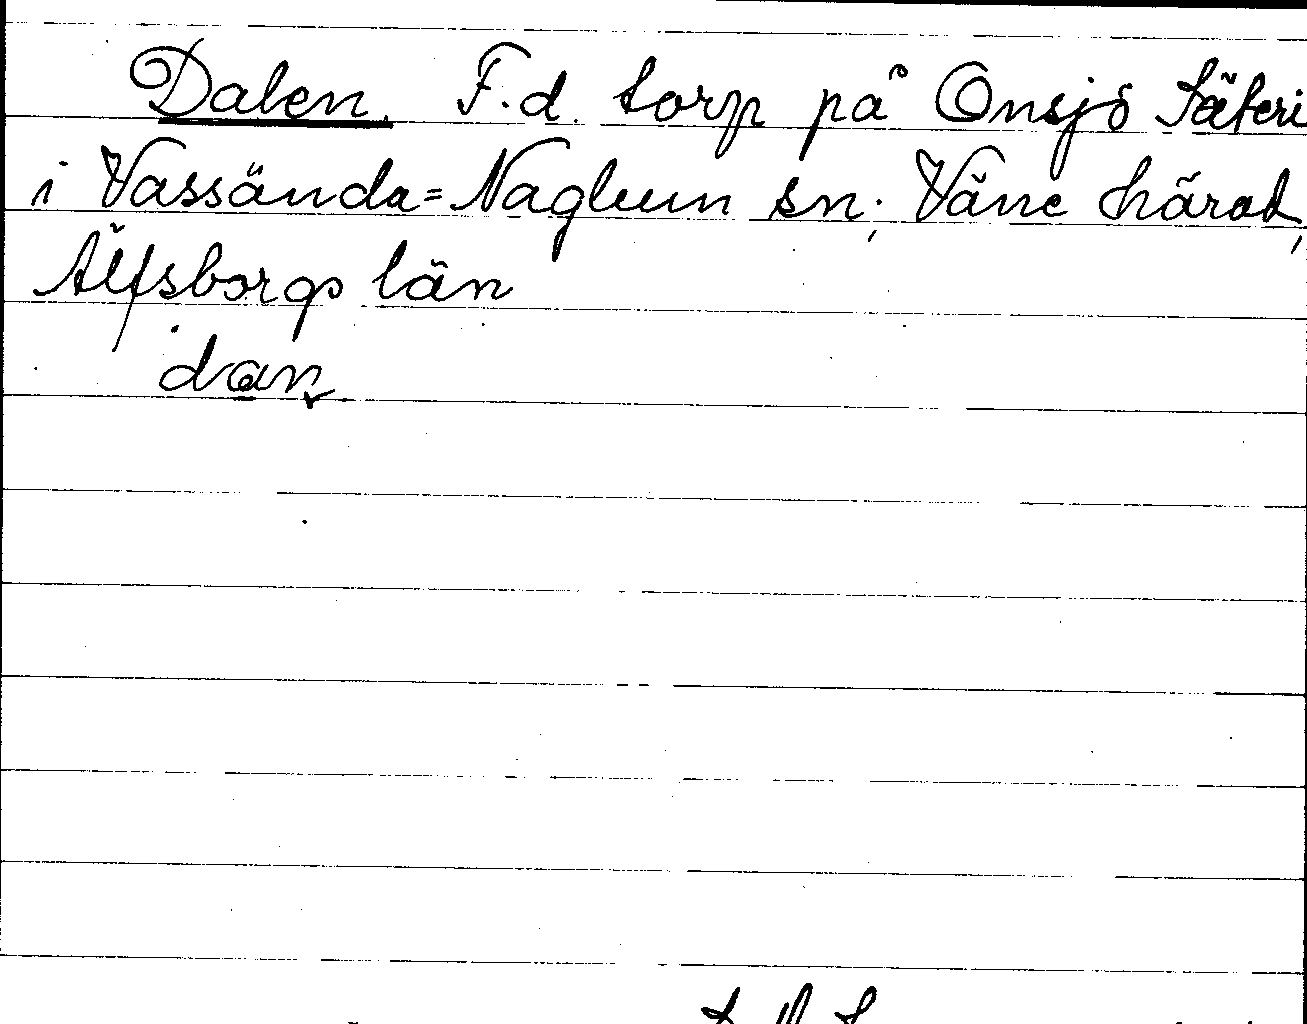 Dalen. F.d. torp på Onsjö Säteri
i Vassända=Naglum sn, Väne härad,
Älfsborgs län
dan